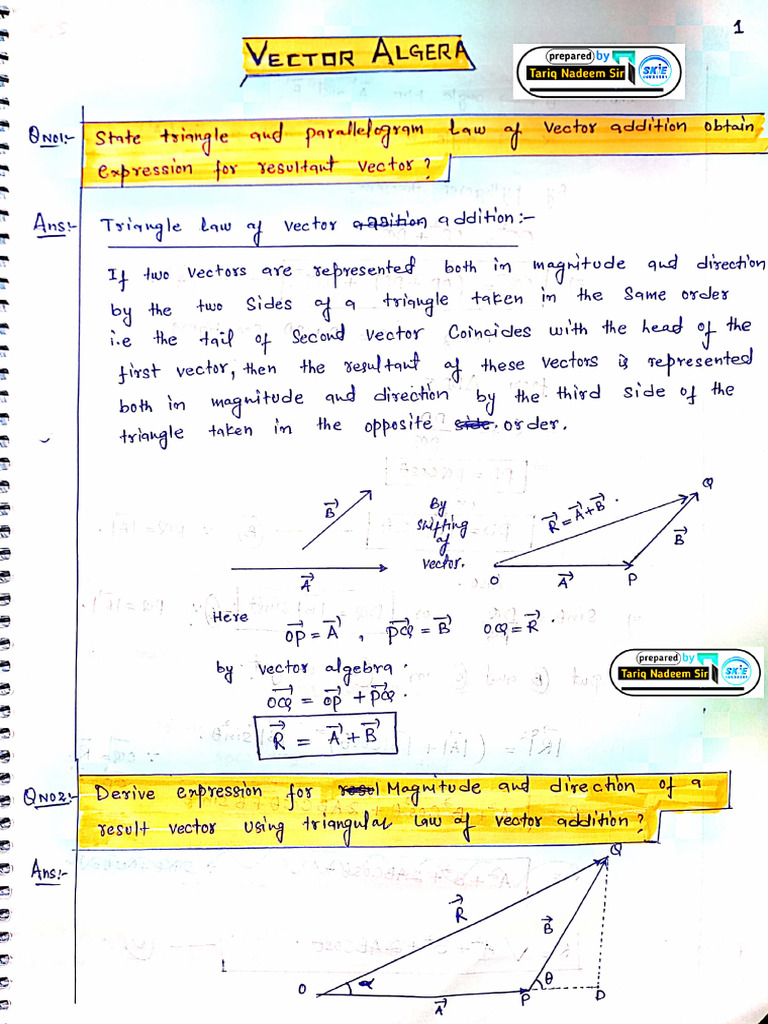 1
VECTOR ALGERA
prepared by
Tariq Nadeem Sir
SKIE
QNO1:-
State triangle and parallelogram Law of Vector addition obtain
expression for resultant Vector?
Ans:-
Triangle law of vector addition:-
If two vectors are represented both in magnitude and direction
by the two Sides of a triangle taken in the Same order
i.e the tail of Second Vector Coincides with the head of the
first vector, then the resultant of these vectors is represented
both in magnitude and direction by the third side of the
triangle taken in the opposite side. order.
B⃗
A⃗
By
shifting
of
vector.
R⃗ = A⃗ + B⃗.
Q
B⃗
O
A⃗
P
Here
OP⃗ = A⃗ , PQ⃗ = B⃗ OQ = R⃗.
by vector algebra.
OQ⃗ = OP⃗ + PQ⃗.
R⃗ = A⃗ + B⃗
prepared by
Tariq Nadeem Sir
SKIE
QNO2:-
Derive expression for Magnitude and direction of a
result vector using triangular Law of vector addition?
Ans:-
Q
R⃗
B⃗
O
α
A⃗
P
θ
D